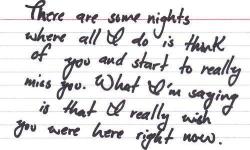 There are some nights
where all I do is think
of you and start to really
miss you. What I'm saying
is that I really wish
you were here right now.